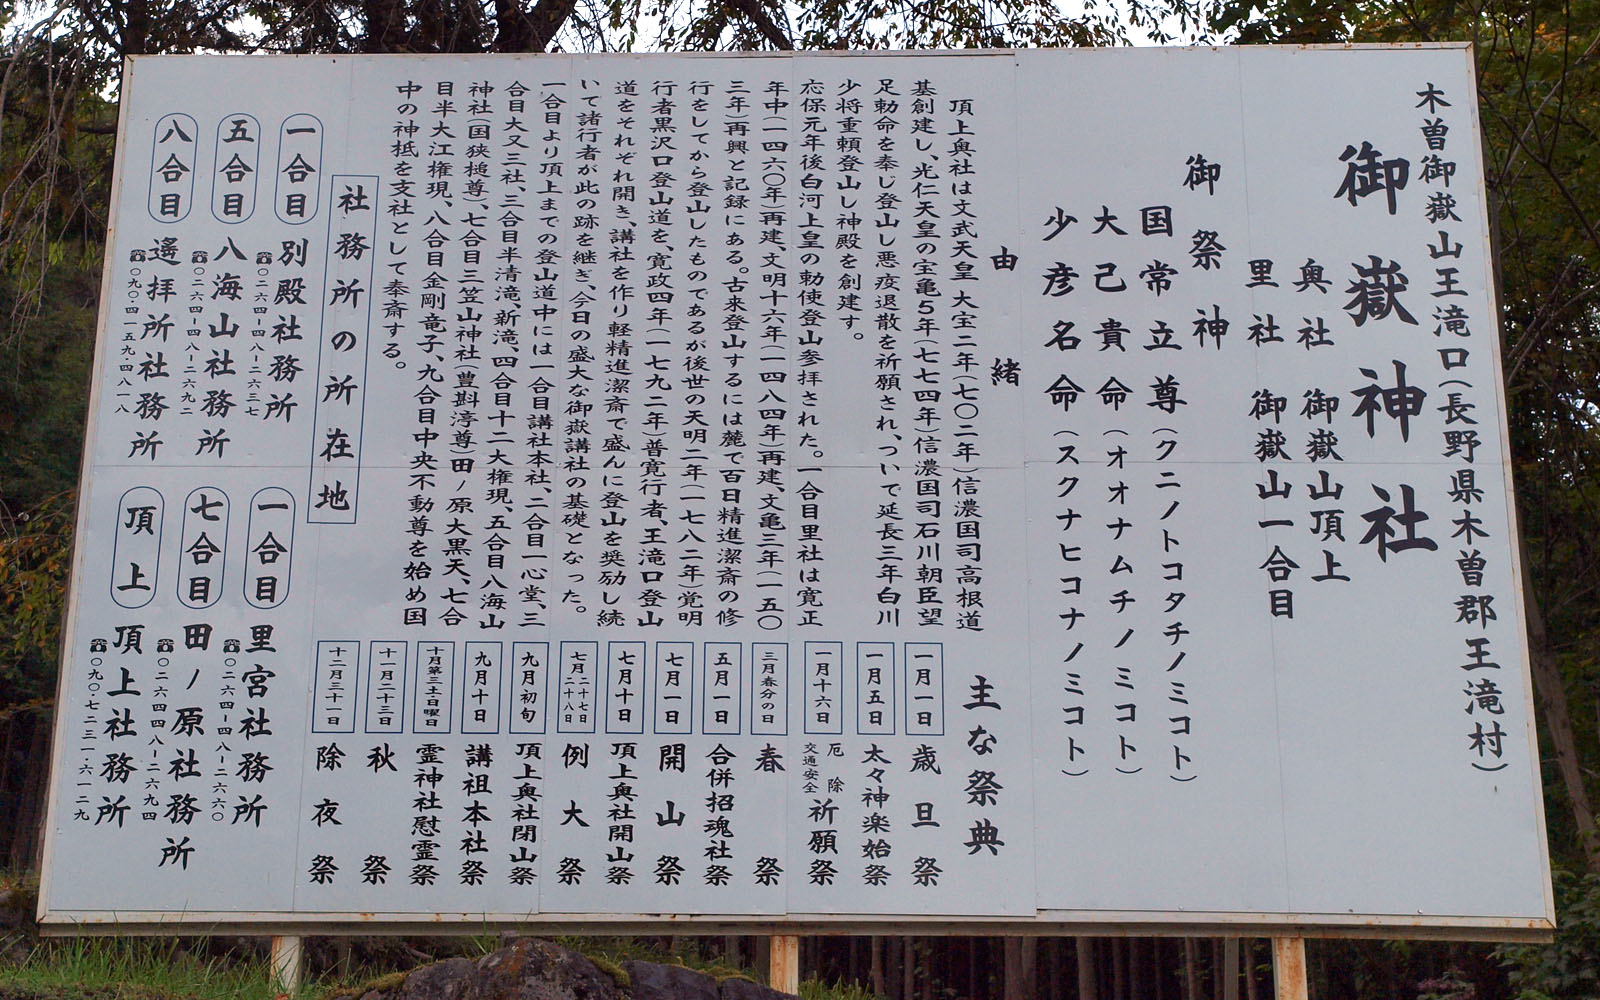 木曽御嶽山王滝口(長野県木曽郡王滝村)
御嶽神社
奥社 御嶽山頂上
里社 御嶽山一合目
御祭神
国常立尊(クニノトコタチノミコト)
大己貴命(オオナムチノミコト)
少彦名命(スクナヒコナノミコト)
由緒
頂上奥社は文武天皇 大宝二年(七〇二年)信濃国司高根道
基創建し、光仁天皇の宝亀5年(七七四年)信濃国司石川朝臣望
足勅命を奉じ登山し悪疫退散を祈願され、ついで延長三年白川
少将重頼登山し神殿を創建す。
応保元年後白河上皇の勅使登山参拝された。一合目里社は寛正
年中(一四六〇年)再建、文明十六年(一四八四年)再建、文亀三年(一五〇
三年)再興と記録にある。古来登山するには麓で百日精進潔斎の修
行をしてから登山したものであるが後世の天明二年(一七八二年)覚明
行者黒沢口登山道を、寛政四年(一七九二年)普寛行者、王滝口登山
道をそれぞれ開き、講社を作り軽精進潔斎で盛んに登山を奨励し続
いて諸行者が此の跡を継ぎ、今日の盛大な御嶽講社の基礎となった。
一合目より頂上までの登山道中には一合目講社本社、二合目一心堂、三
合目大又三社、三合目半清滝、新滝、四合目十二大権現、五合目八海山
神社(国狭槌尊)、七合目三笠山神社(豊斟渟尊)田ノ原大黒天、七合
目半大江権現、八合目金剛竜子、九合目中央不動尊を始め国
中の神祇を支社として奉斎する。
主な祭典
一月一日 歳旦祭
一月五日 太々神楽始祭
一月十六日 厄除 交通安全 祈願祭
三月春分の日 春祭
五月一日 合併招魂社祭
七月一日 開山祭
七月十日 頂上奥社開山祭
七月二十七日 二十八日 例大祭
九月初旬 頂上奥社閉山祭
九月十日 講祖本社祭
十月第三土日曜日 霊神社慰霊祭
十一月二十三日 秋祭
十二月三十一日 除夜祭
社務所の所在地
一合目 別殿社務所
☎〇二六四-四八-二六三七
五合目 八海山社務所
☎〇二六四-四八-二六九二
八合目 遙拝所社務所
☎〇九〇-四一五九-四八一八
一合目 里宮社務所
☎〇二六四-四八-二六六〇
七合目 田ノ原社務所
☎〇二六四-四八-二六九四
頂上 頂上社務所
☎〇九〇-七二三一-六一二九